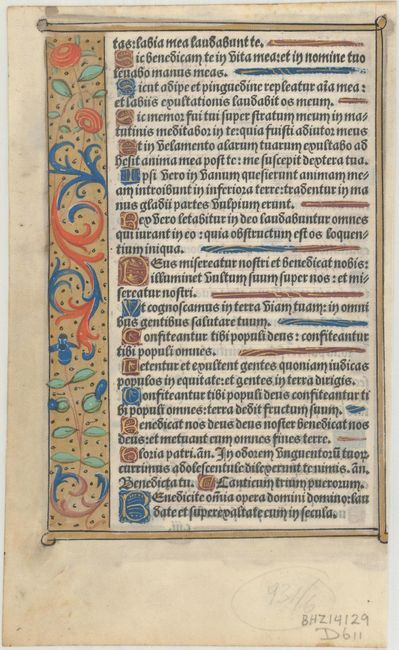 tas: labia mea laudabunt te.
Sic benedicam te in vita mea: et in nomine tuo
levabo manus meas.
Sicut adipe et pinguedine repleatur aīa mea:
et labiis exultationis laudabit os meum.
Sic memor fui tui super stratum meum in ma-
tutinis meditabor in te: quia fuisti adiutor meus
Et in velamento alarum tuarum exultabo ad
hesit anima mea post te: me suscepit dextera tua.
Ipsi vero in vanum quesierunt animam me-
am introibunt in inferiora terre: tradentur in ma
nus gladii partes vulpium erunt.
Rex vero letabitur in deo laudabuntur omnes
qui iurant in eo: quia obstructum est os loquen-
tium iniqua.
DEus misereatur nostri et benedicat nobis:
illuminet vultum suum super nos: et mi-
sereatur nostri.
Ut cognoscamus in terra viam tuam: in omni
bus gentibus salutare tuum.
Confiteantur tibi populi deus: confiteantur
tibi populi omnes.
Letentur et exultent gentes quoniam iudicas
populos in equitate: et gentes in terra dirigis.
Confiteantur tibi populi deus confiteantur ti
bi populi omnes: terra dedit fructum suum.
Benedicat nos deus deus noster benedicat nos
deus: et metuant eum omnes fines terre.
Gloria patri. añ. In odorem unguentorū tuoꝝ
currimus adolescentule dilexerunt te nimis. añ.
Benedicta tu. Canticum trium puerorum.
BEnedicite oīnia opera domini domino: lau
date et superexaltate eum in secula.
931/6
BHZ14129
D611